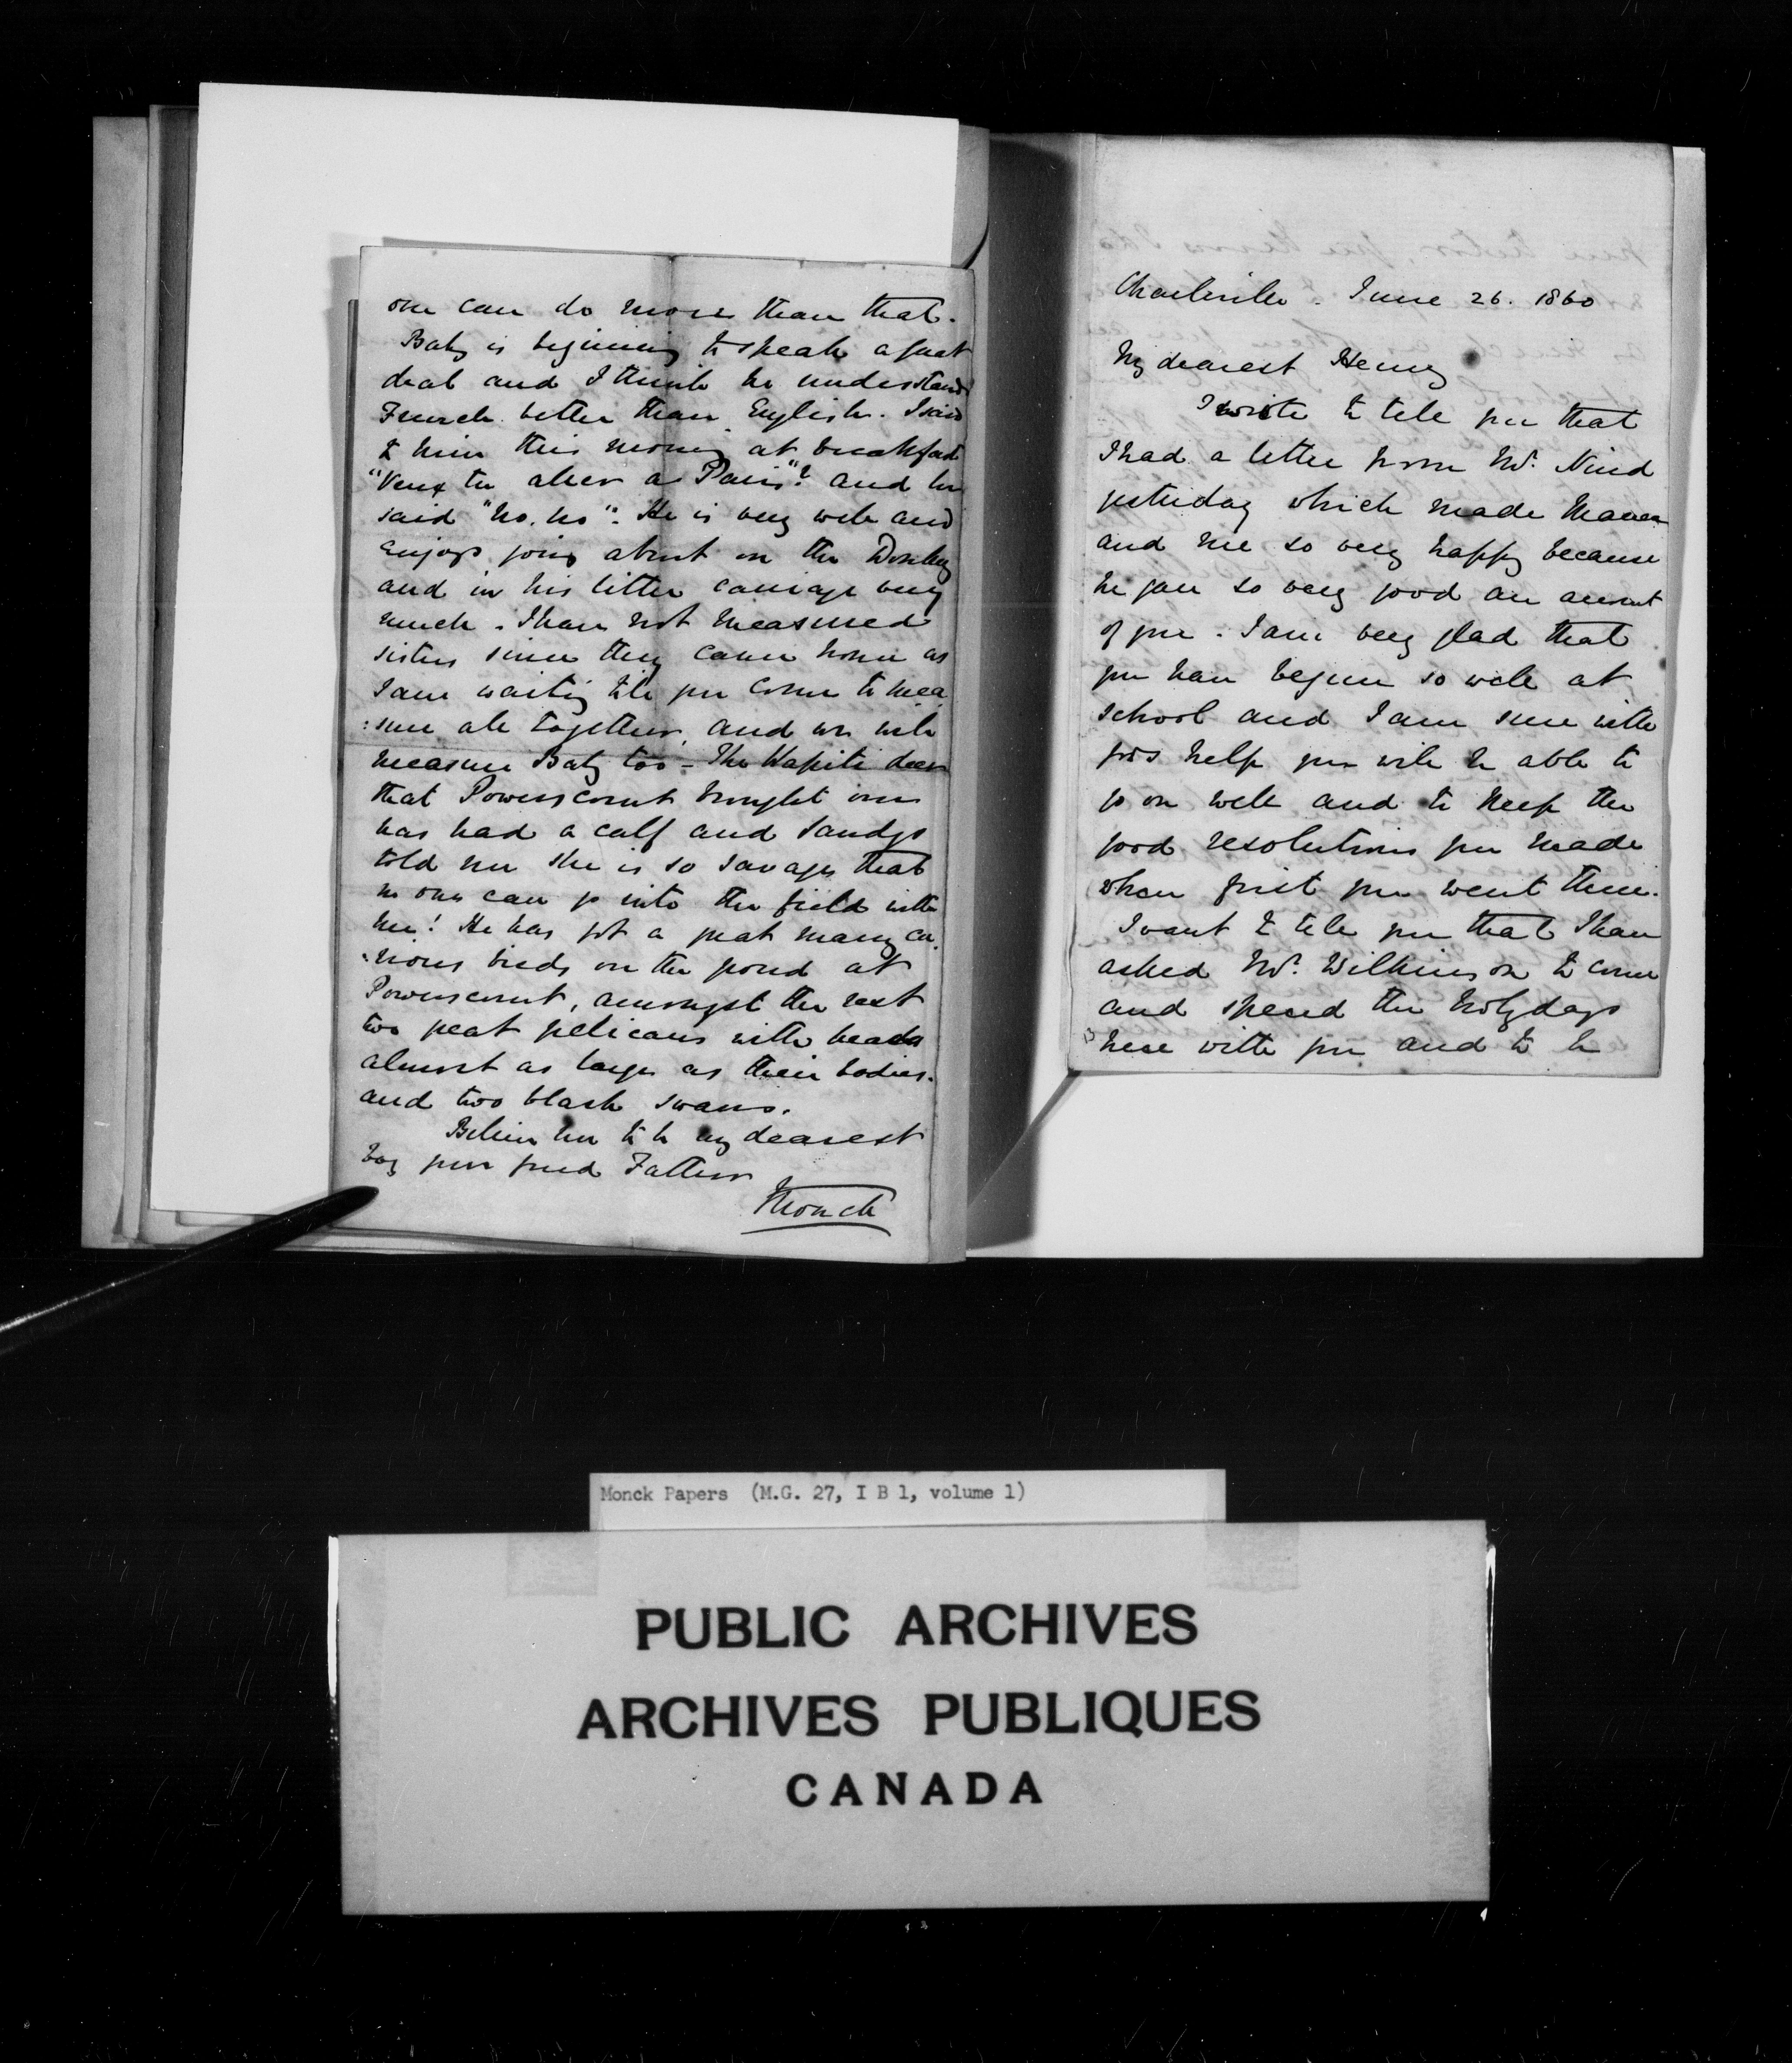 one can do more than that.
Baby is beginning to speak a great
deal and I think he understands
French better than English. I said
to him this morning at breakfast
"Veux tu aller a Paris"? and he
said "no. no". He is very well and
enjoys going about on the Donkey
and in his little carriage very
much. I have not measured
sisters since they came home as
I am waiting till you come to mea
:sure all together, and we will
measure Baby too - The Wapiti deer
that Powerscourt brought over
has had a calf and Sandys
told me she is so savage that
no one can go into the field with
her! He has got a great many cu
:rious birds on the pond at
Powerscourt, amongst the rest
two great pelicans with beaks
almost as large as their bodies.
and two black swans.
Believe me to be my dearest
boy your fond Father
Monck
Charleville - June 26. 1860
My dearest Henry
I write to tell you that
I had a letter from Mr. Nind
yesterday which made Mama
and me so very happy because
he gave so very good an account
of you. I am very glad that
you have begun so well at
school and I am sure with
God's help you will be able to
go on well and to keep the
good resolutions you made
when first you went there.
I want to tell you that I have
asked Mr. Wilkinson to come
and spend the holydays
here with you and to be
Monck Papers (M.G. 27, I B 1, volume 1)
PUBLIC ARCHIVES
ARCHIVES PUBLIQUES
CANADA